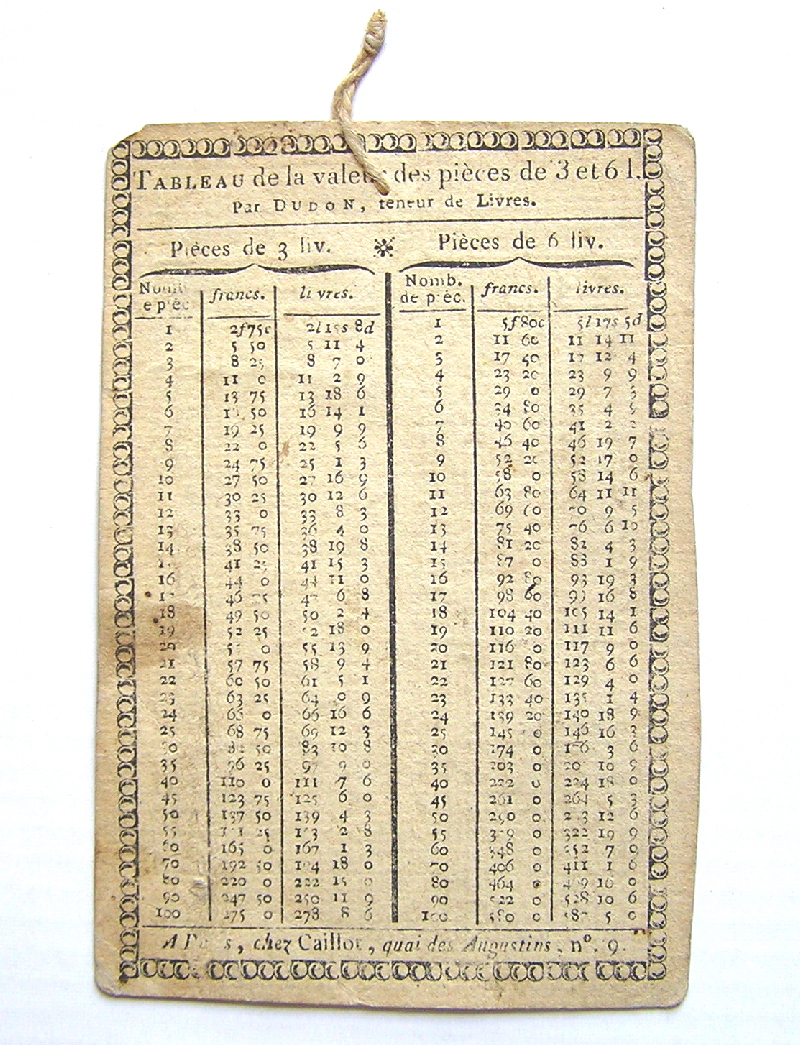 TABLEAU de la valeur des pièces de 3 et 6 l.
Par DUDON, teneur de Livres.
Pièces de 3 liv. Pièces de 6 liv.
Nomb. francs. livres. Nomb. francs. livres.
e pièc. de pièc.
1 2f 75c 2l 15s 8d 1 5f 80c 5l 17s 5d
2 5 50 5 11 4 2 11 60 11 14 11
3 8 25 8 7 0 3 17 40 17 12 4
4 11 0 11 2 9 4 23 20 23 9 9
5 13 75 13 18 6 5 29 0 29 7 3
6 50 16 14 1 6 34 80 35 4 5
7 19 25 19 9 9 7 40 60 41 2 2
8 22 0 22 5 6 8 46 40 46 19 7
9 24 75 25 1 3 9 52 20 52 17 0
10 27 50 27 16 9 10 58 0 58 14 6
11 30 25 30 12 6 11 63 80 64 11 11
12 33 0 33 8 3 12 69 60 70 9 5
13 35 75 36 4 0 13 75 40 76 6 10
14 38 50 38 19 8 14 81 20 82 4 3
41 25 41 15 3 15 87 0 88 1 9
16 44 0 44 11 0 16 92 80 93 19 3
17 46 75 47 6 8 17 98 60 99 16 8
18 49 50 50 2 4 18 104 40 105 14 1
19 52 25 52 18 0 19 110 20 111 11 6
20 0 55 13 9 20 116 0 117 9 0
21 57 75 58 9 4 21 121 80 123 6 6
22 60 50 61 5 1 22 127 60 129 4 0
23 63 25 64 0 9 23 133 40 135 1 4
24 66 0 66 16 6 24 139 20 140 18 9
25 68 75 69 12 3 25 145 0 146 16 3
30 82 50 83 10 8 30 174 0 176 3 6
35 96 25 97 9 0 35 203 0 10 9
40 110 0 111 7 6 40 232 0 234 18 0
45 123 75 125 6 0 45 261 0 264 5 3
50 137 50 139 4 3 50 290 0 293 12 6
55 151 25 153 2 8 55 319 0 322 19 9
60 165 0 167 1 3 60 348 0 352 7 0
70 192 50 194 18 0 70 406 0 411 1 6
80 220 0 222 15 0 80 464 0 469 16 0
90 247 50 250 11 9 90 522 0 528 10 6
100 275 0 278 8 6 100 580 0 587 5 0
A Paris, chez Caillot, quai des Augustins, n°. 9.